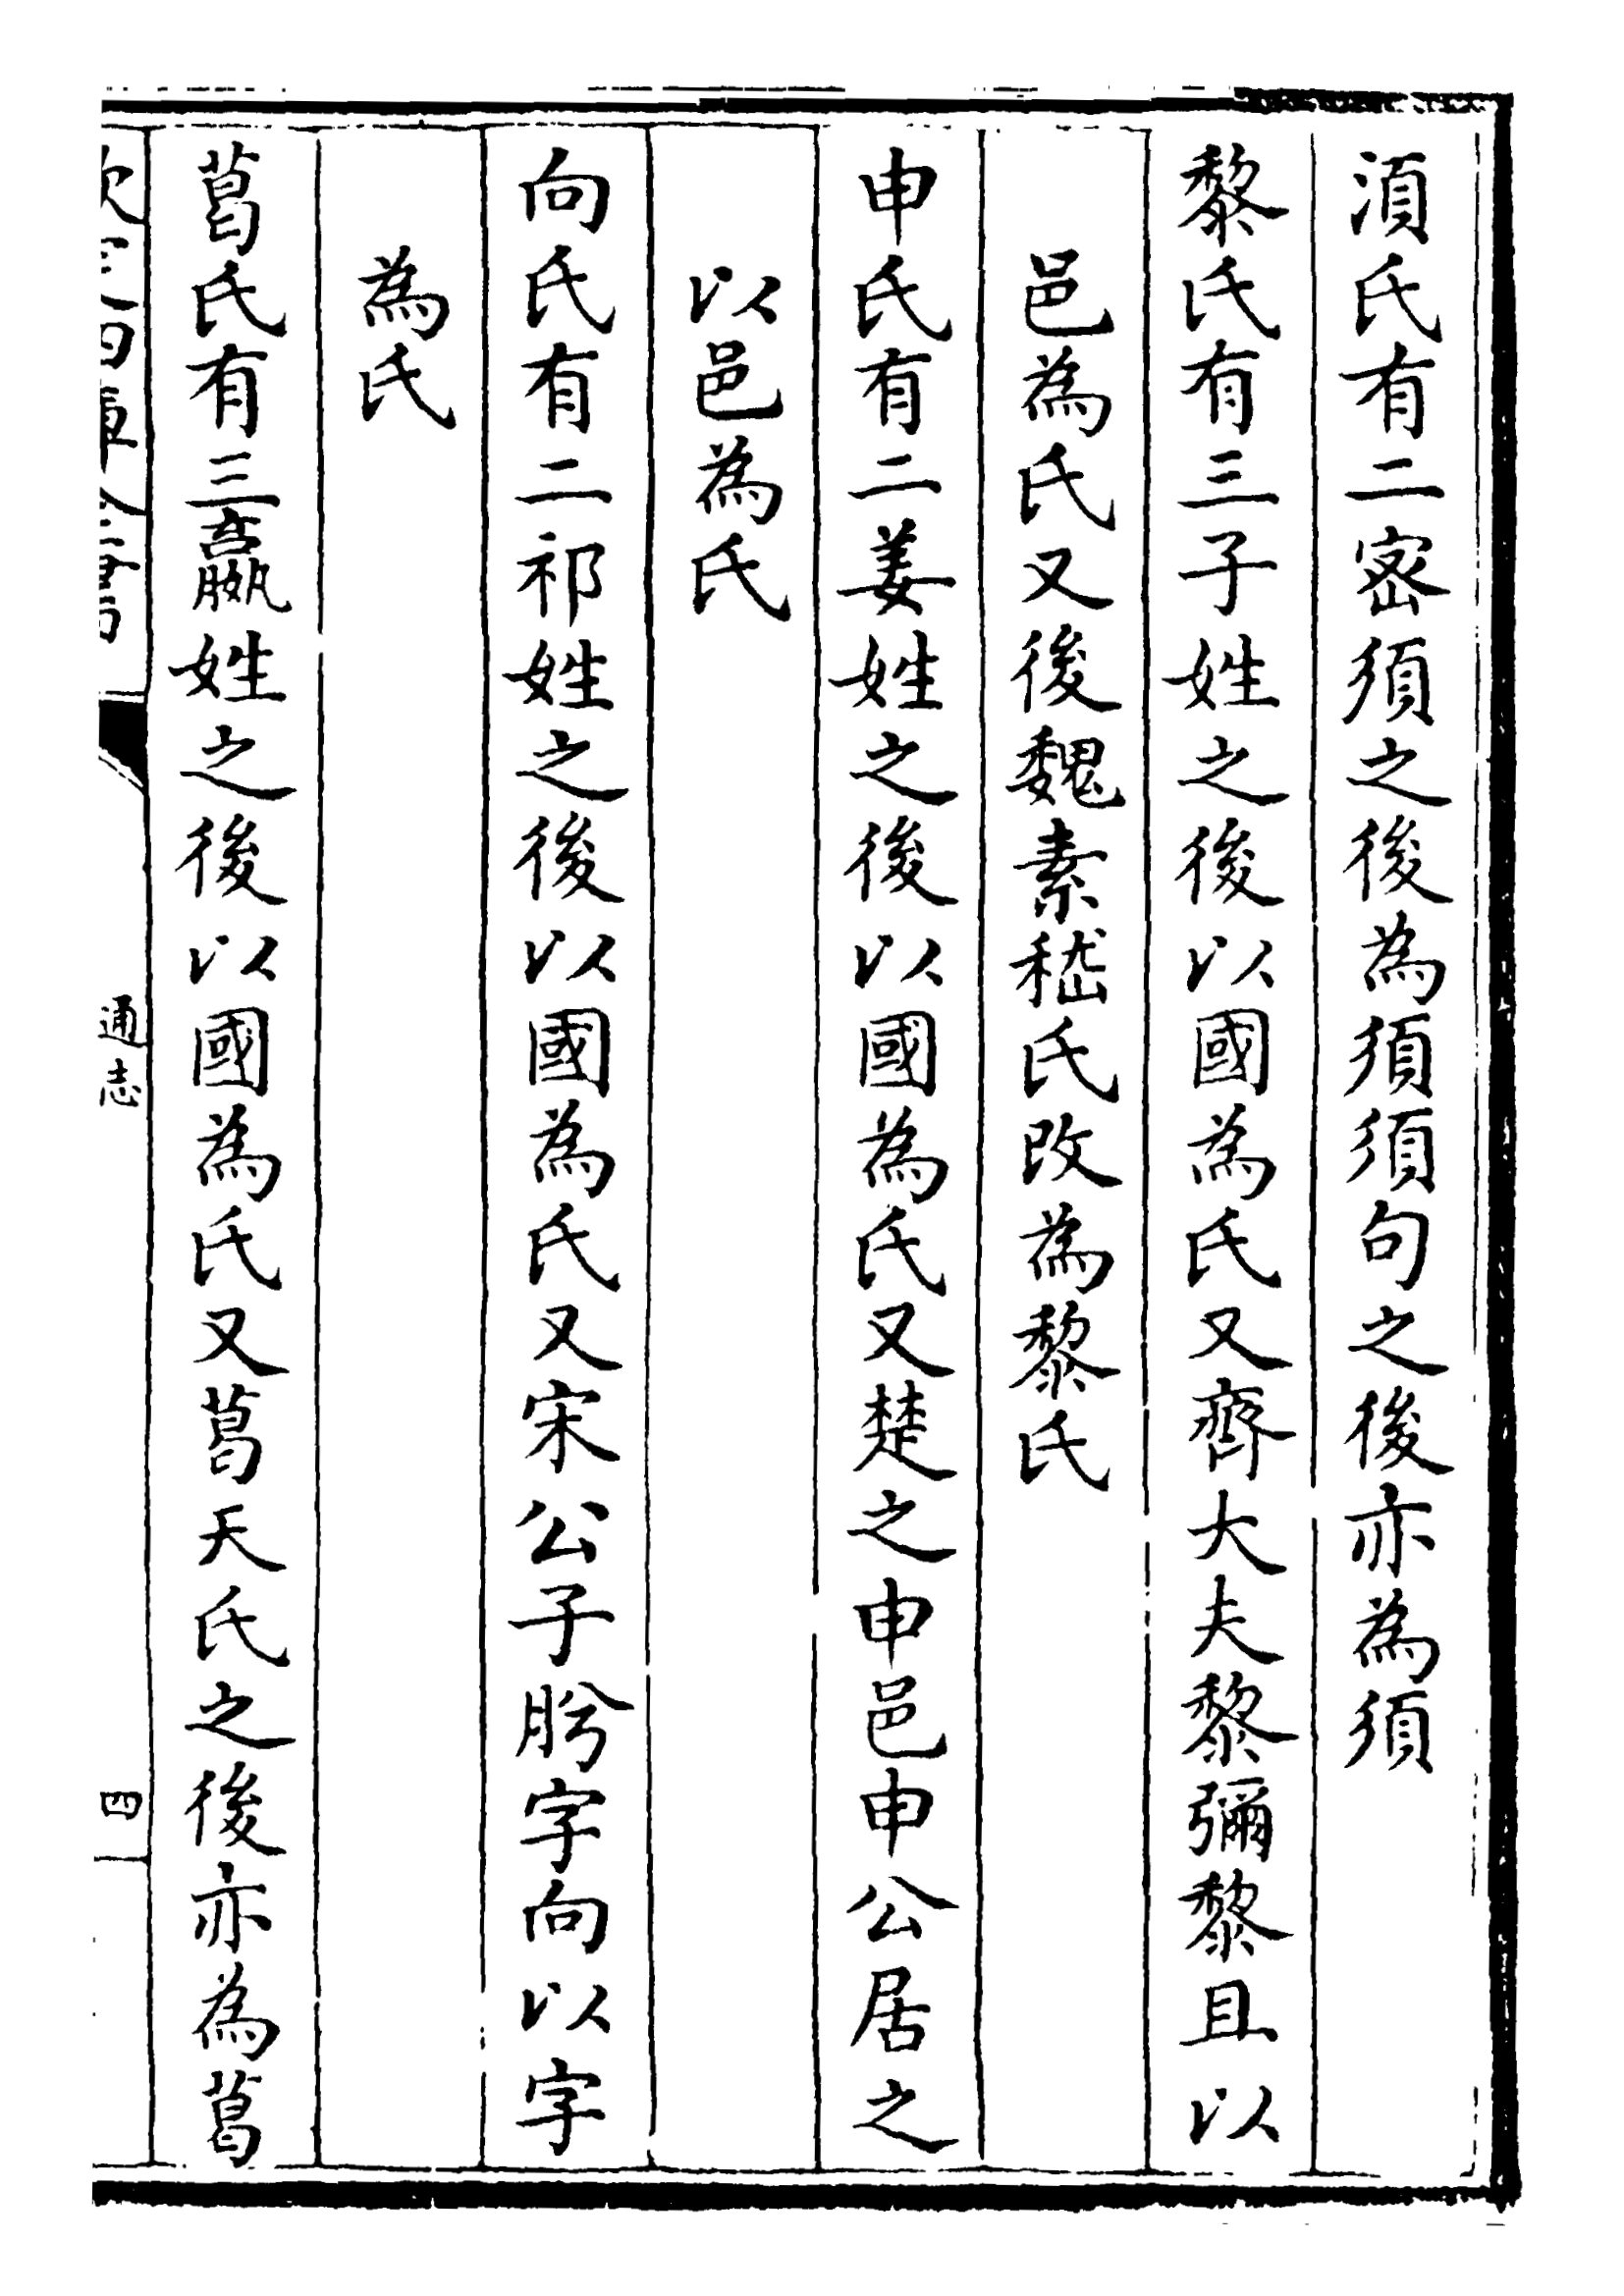 湏氏有二密須之後為須須句之後亦為須
黎氏有三子姓之後以國為氏又齊大夫黎彌黎且以
邑為氏又後魏素嵇氏改為黎氏
申氏有二姜姓之後以國為氏又楚之申邑申公居之
以邑為氏
向氏有二祁姓之後以國為氏又宋公子肹字向以字
為氏
葛氏有三嬴姓之後以國為氏又葛天氏之後亦為葛
欽定四庫全書
通志
四